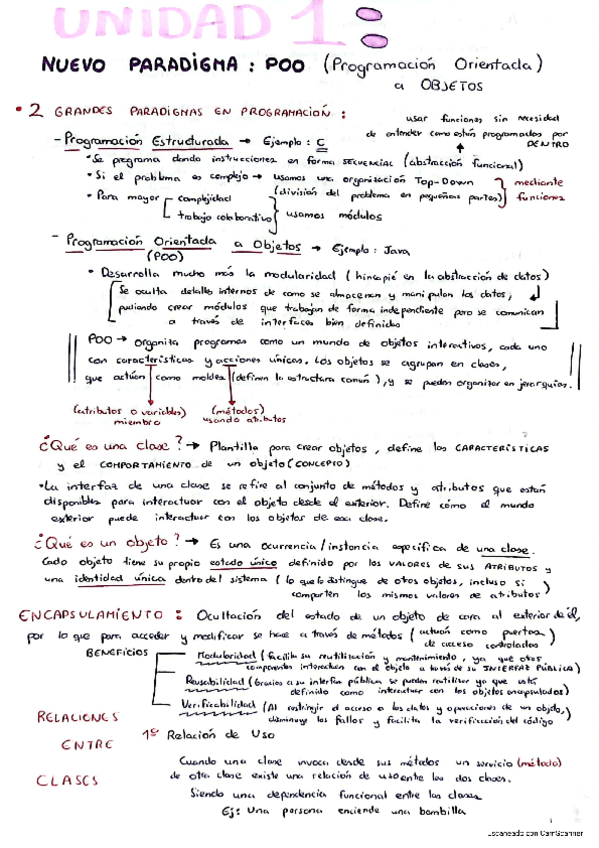 UNIDAD 1:
NUEVO PARADIGMA : POO (Programación Orientada)
a OBJETOS
• 2 GRANDES PARADIGMAS EN PROGRAMACIÓN :
usar funciones sin necesidad
de entender como están programadas por
DENTRO
- Programación Estructurada → Ejemplo : C
• Se programa dando instrucciones en forma SECUENCIAL (abstracción funcional)
• Si el problema es complejo → usamos una organización Top-Down
(división del problema en pequeñas partes)
mediante
funciones
• Para mayor
complejidad
trabajo colaborativo
usamos módulos
- Programación Orientada a Objetos → Ejemplo : Java
(POO)
• Desarrolla mucho más la modularidad (hincapié en la abstracción de datos)
Se oculta detalles internos de como se almacenan y manipulan los datos,
pudiendo crear módulos que trabajan de forma independiente pero se comunican
a través de interfaces bien definidas
POO → organiza programas como un mundo de objetos interactivos, cada uno
con características y acciones únicas. Los objetos se agrupan en clases,
que actúan como moldes (definen la estructura común), y se pueden organizar en jerarquías.
(atributos o variables)
miembro
(métodos)
usando atributos
¿Qué es una clase? → Plantilla para crear objetos, define las CARACTERÍSTICAS
y el COMPORTAMIENTO de un objeto (CONCEPTO)
• La interfaz de una clase se refire al conjunto de métodos y atributos que están
disponibles para interactuar con el objeto desde el exterior. Define cómo el mundo
exterior puede interactuar con los objetos de esa clase.
¿Qué es un objeto? → Es una ocurrencia/instancia específica de una clase.
Cada objeto tiene su propio estado único definido por los VALORES de sus ATRIBUTOS y
una identidad única dentro del sistema (lo que lo distingue de otros objetos, incluso si
comparten los mismos valores de atributos)
ENCAPSULAMIENTO : Ocultación del estado de un objeto de cara al exterior de él,
por lo que para acceder y modificar se hace a través de métodos (actúan como puertas)
de acceso controlados
BENEFICIOS
Modularidad (facilita su reutilización y mantenimiento, ya que otros
componentes interactúan con el objeto a través de su INTERFAZ PÚBLICA)
Reusabilidad (Gracias a su interfaz pública se pueden reutilizar ya que está
definido como interactuar con los objetos encapsulados)
Verificabilidad (Al restringir el acceso a los datos y operaciones de un objeto,
disminuye los fallos y facilita la verificación del código)
RELACIONES
ENTRE
CLASES
1º Relación de Uso
Cuando una clase invoca desde sus métodos un servicio (método)
de otra clase existe una relación de uso entre las dos clases.
Siendo una dependencia funcional entre las clases
Ej: Una persona enciende una bombilla
Escaneado con CamScanner